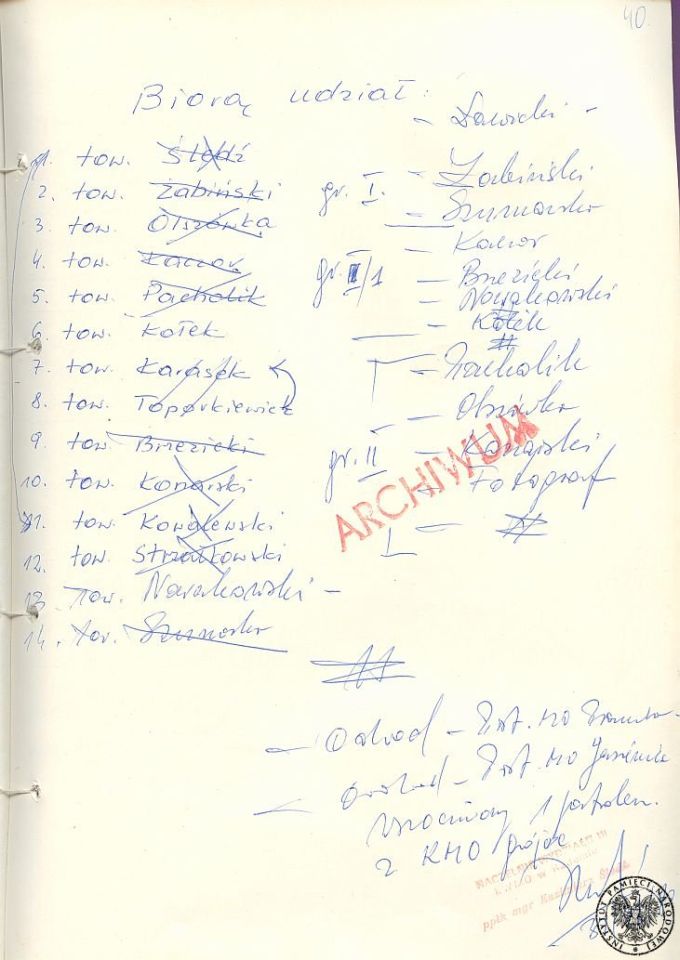 40.
Biorą udział:
1. tow. Śledź
2. tow. Żabiński
3. tow. Olszówka
4. tow. Kaczor
5. tow. Pacholik
6. tow. Kołek
7. tow. Karasek
8. tow. Toporkiewicz
9. tow. Brzezicki
10. tow. Konarski
11. tow. Kowalewski
12. tow. Strzałkowski
13. tow. Nowakowski –
14. tow.
– Sawicki –
gr. I.
– Żabiński
– Kaczor
gr. II/1
– Brzezicki
– Nowakowski
– Kołek
– Pacholik
– Olszówka
gr. II
– Konarski
– Fotograf
ARCHIWUM
– Odwod – Post. MO
– Odwod – Post. MO
wzmocniony 1 patrolem
z KMO Grójec
NACZELNIK WYDZIAŁU III
ppłk mgr Kazimierz
INSTYTUT PAMIĘCI NARODOWEJ